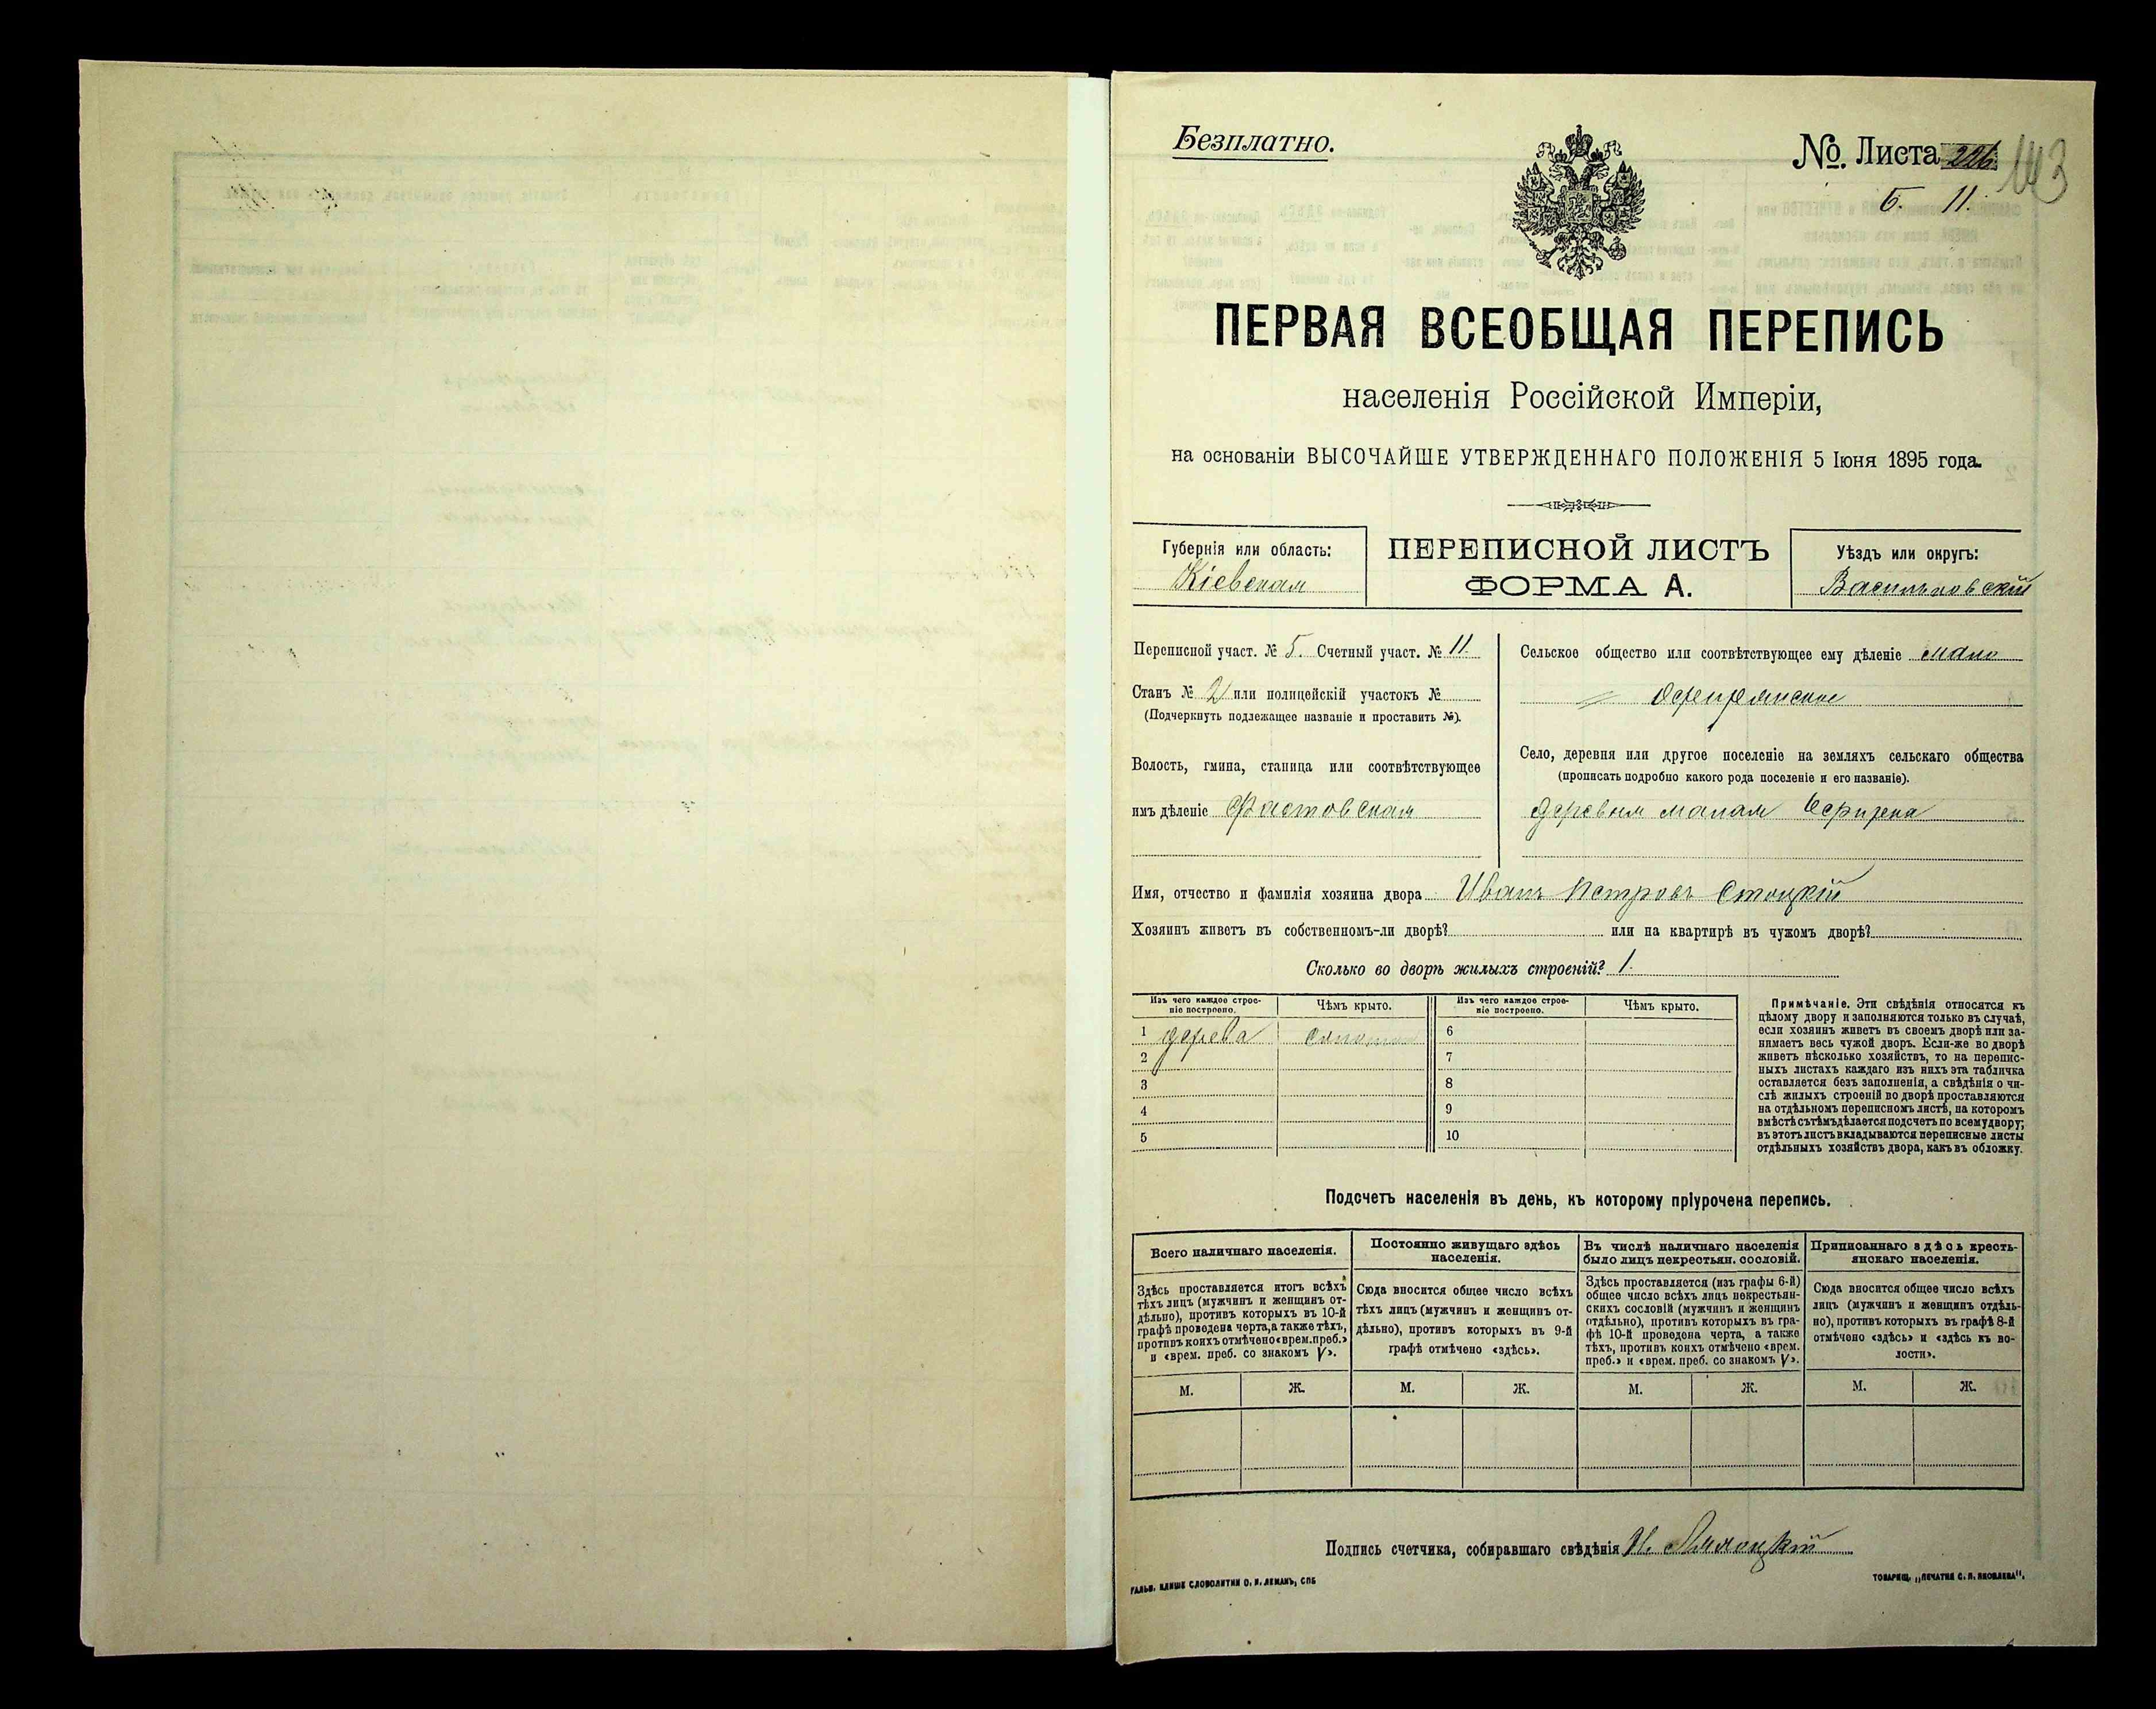 Безплатно.
№ Листа 226. 143
5. 11.
ПЕРВАЯ ВСЕОБЩАЯ ПЕРЕПИСЬ
населенія Россійской Имперіи,
на основаніи ВЫСОЧАЙШЕ УТВЕРЖДЕННАГО ПОЛОЖЕНІЯ 5 Іюня 1895 года.
Губернія или область:
Кіевская
ПЕРЕПИСНОЙ ЛИСТЪ
ФОРМА А.
Уѣздъ или округъ:
Васильковскій
Переписной участ. № 5. Счетный участ. № 11
Станъ № 2 или полицейскій участокъ №
(Подчеркнуть подлежащее названіе и проставить №).
Волость, гмина, станица или соотвѣтствующее
имъ дѣленіе Фастовская
Сельское общество или соотвѣтствующее ему дѣленіе мало
Село, деревня или другое поселеніе на земляхъ сельскаго общества
(прописать подробно какого рода поселеніе и его названіе).
деревня малая
Имя, отчество и фамилія хозяина двора Иванъ Петровъ Стоцкій
Хозяинъ живетъ въ собственномъ-ли дворѣ? или на квартирѣ въ чужомъ дворѣ?
Сколько во дворѣ жилыхъ строеній? 1.
Изъ чего каждое строе-
ніе построено.
Чѣмъ крыто.
Изъ чего каждое строе-
ніе построено.
Чѣмъ крыто.
1 дерева 6
2 7
3 8
4 9
5 10
Примѣчаніе. Эти свѣдѣнія относятся къ
цѣлому двору и заполняются только въ случаѣ,
если хозяинъ живетъ въ своемъ дворѣ или за-
нимаетъ весь чужой дворъ. Если-же во дворѣ
живетъ нѣсколько хозяйствъ, то на перепис-
ныхъ листахъ каждаго изъ нихъ эта табличка
оставляется безъ заполненія, а свѣдѣнія о чи-
слѣ жилыхъ строеній во дворѣ проставляются
на отдѣльномъ переписномъ листѣ, на которомъ
вмѣстѣ съ тѣмъ дѣлается подсчетъ по всему двору;
въ этотъ листъ вкладываются переписные листы
отдѣльныхъ хозяйствъ двора, какъ въ обложку.
Подсчетъ населенія въ день, къ которому пріурочена перепись.
Всего наличнаго населенія.
Здѣсь проставляется итогъ всѣхъ
тѣхъ лицъ (мужчинъ и женщинъ от-
дѣльно), противъ которыхъ въ 10-й
графѣ проведена черта, а также тѣхъ,
противъ коихъ отмѣчено «врем. преб.»
и «врем. преб. со знакомъ V».
М. Ж.
Постоянно живущаго здѣсь
населенія.
Сюда вносится общее число всѣхъ
тѣхъ лицъ (мужчинъ и женщинъ от-
дѣльно), противъ которыхъ въ 9-й
графѣ отмѣчено «здѣсь».
М. Ж.
Въ числѣ наличнаго населенія
было лицъ некрестьян. сословій.
Здѣсь проставляется (изъ графы 6-й)
общее число всѣхъ лицъ некрестьян-
скихъ сословій (мужчинъ и женщинъ
отдѣльно), противъ которыхъ въ гра-
фѣ 10-й проведена черта, а также
тѣхъ, противъ коихъ отмѣчено «врем.
преб.» и «врем. преб. со знакомъ V».
М. Ж.
Приписаннаго здѣсь кресть-
янскаго населенія.
Сюда вносится общее число всѣхъ
лицъ (мужчинъ и женщинъ отдѣль-
но), противъ которыхъ въ графѣ 8-й
отмѣчено «здѣсь» и «здѣсь къ во-
лости».
М. Ж.
Подпись счетчика, собиравшаго свѣдѣнія И.
ГАЛЬВ. КЛИШЕ СЛОВОЛИТНИ О. И. ЛЕМАНЪ, СПБ
ТОВАРИЩ. „ПЕЧАТНЯ С. П. ЯКОВЛЕВА“.